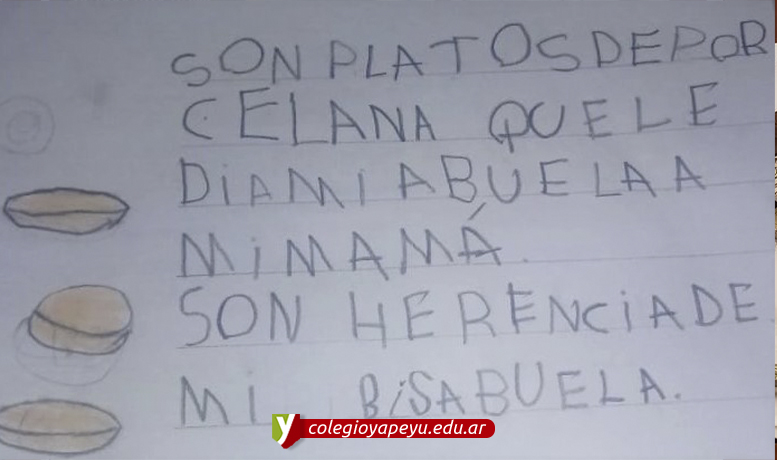 SON PLATOS DE POR
CELANA QUE LE
DiA MI ABUELA A
MiMAMÁ.
SON HERENCiA DE
Mi BiSABUELA.
y colegioyapeyu.edu.ar